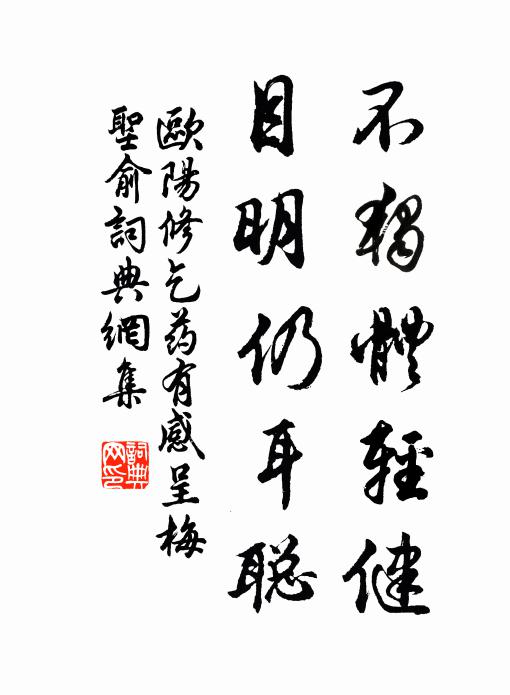 不獨體輕健
目明仍耳聪
歐陽修乞药有感呈梅
聖俞詞典網集
詞典网印